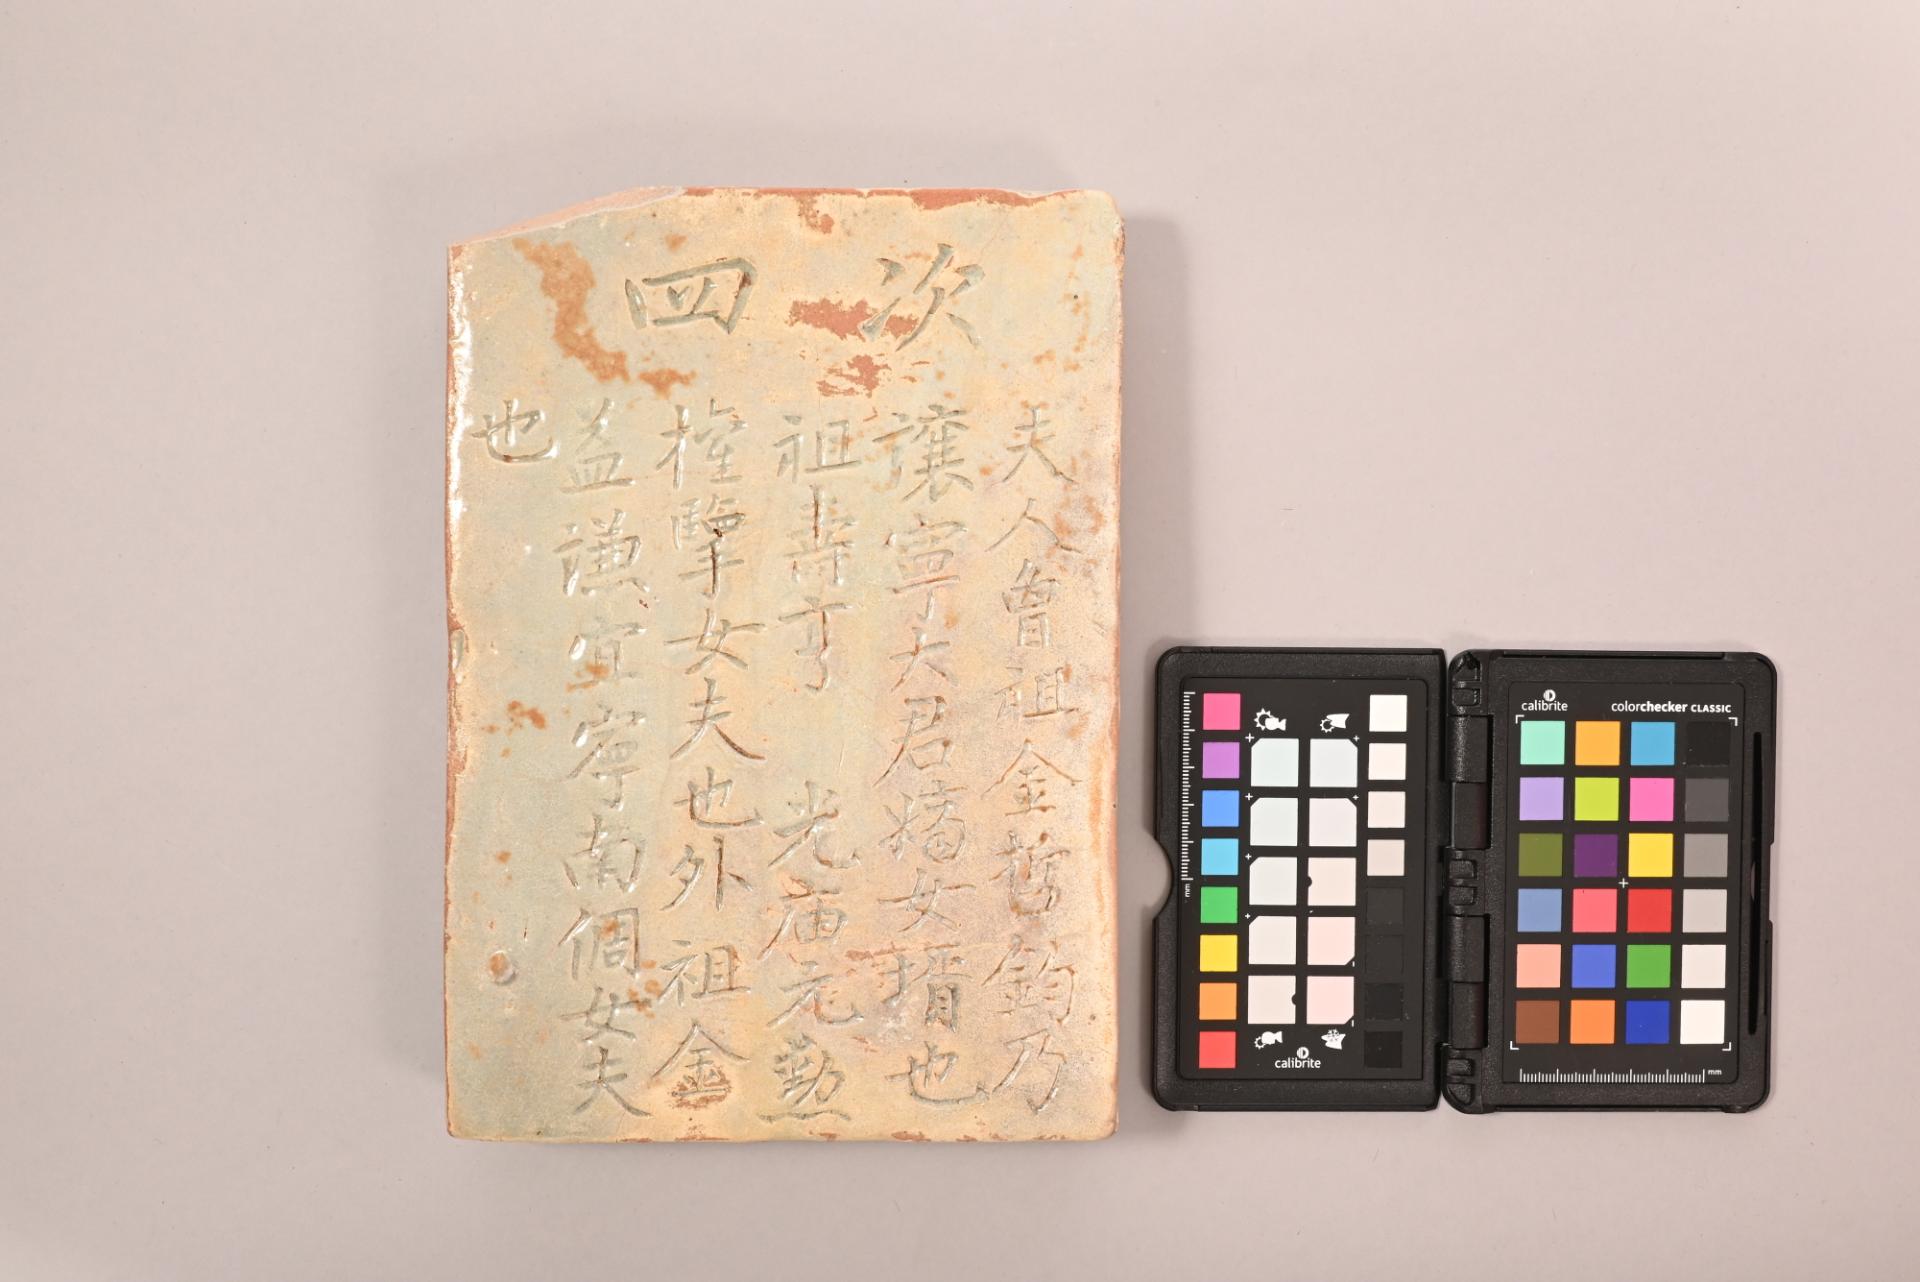 次四
夫人曾祖金哲鈞乃
讓寧大君嫡女壻也
祖壽亨 光庙元勳
權擥女夫也外祖金
益謙宜寧南倜女夫
也
calibrite
mm
calibrite
colorchecker CLASSIC
mm